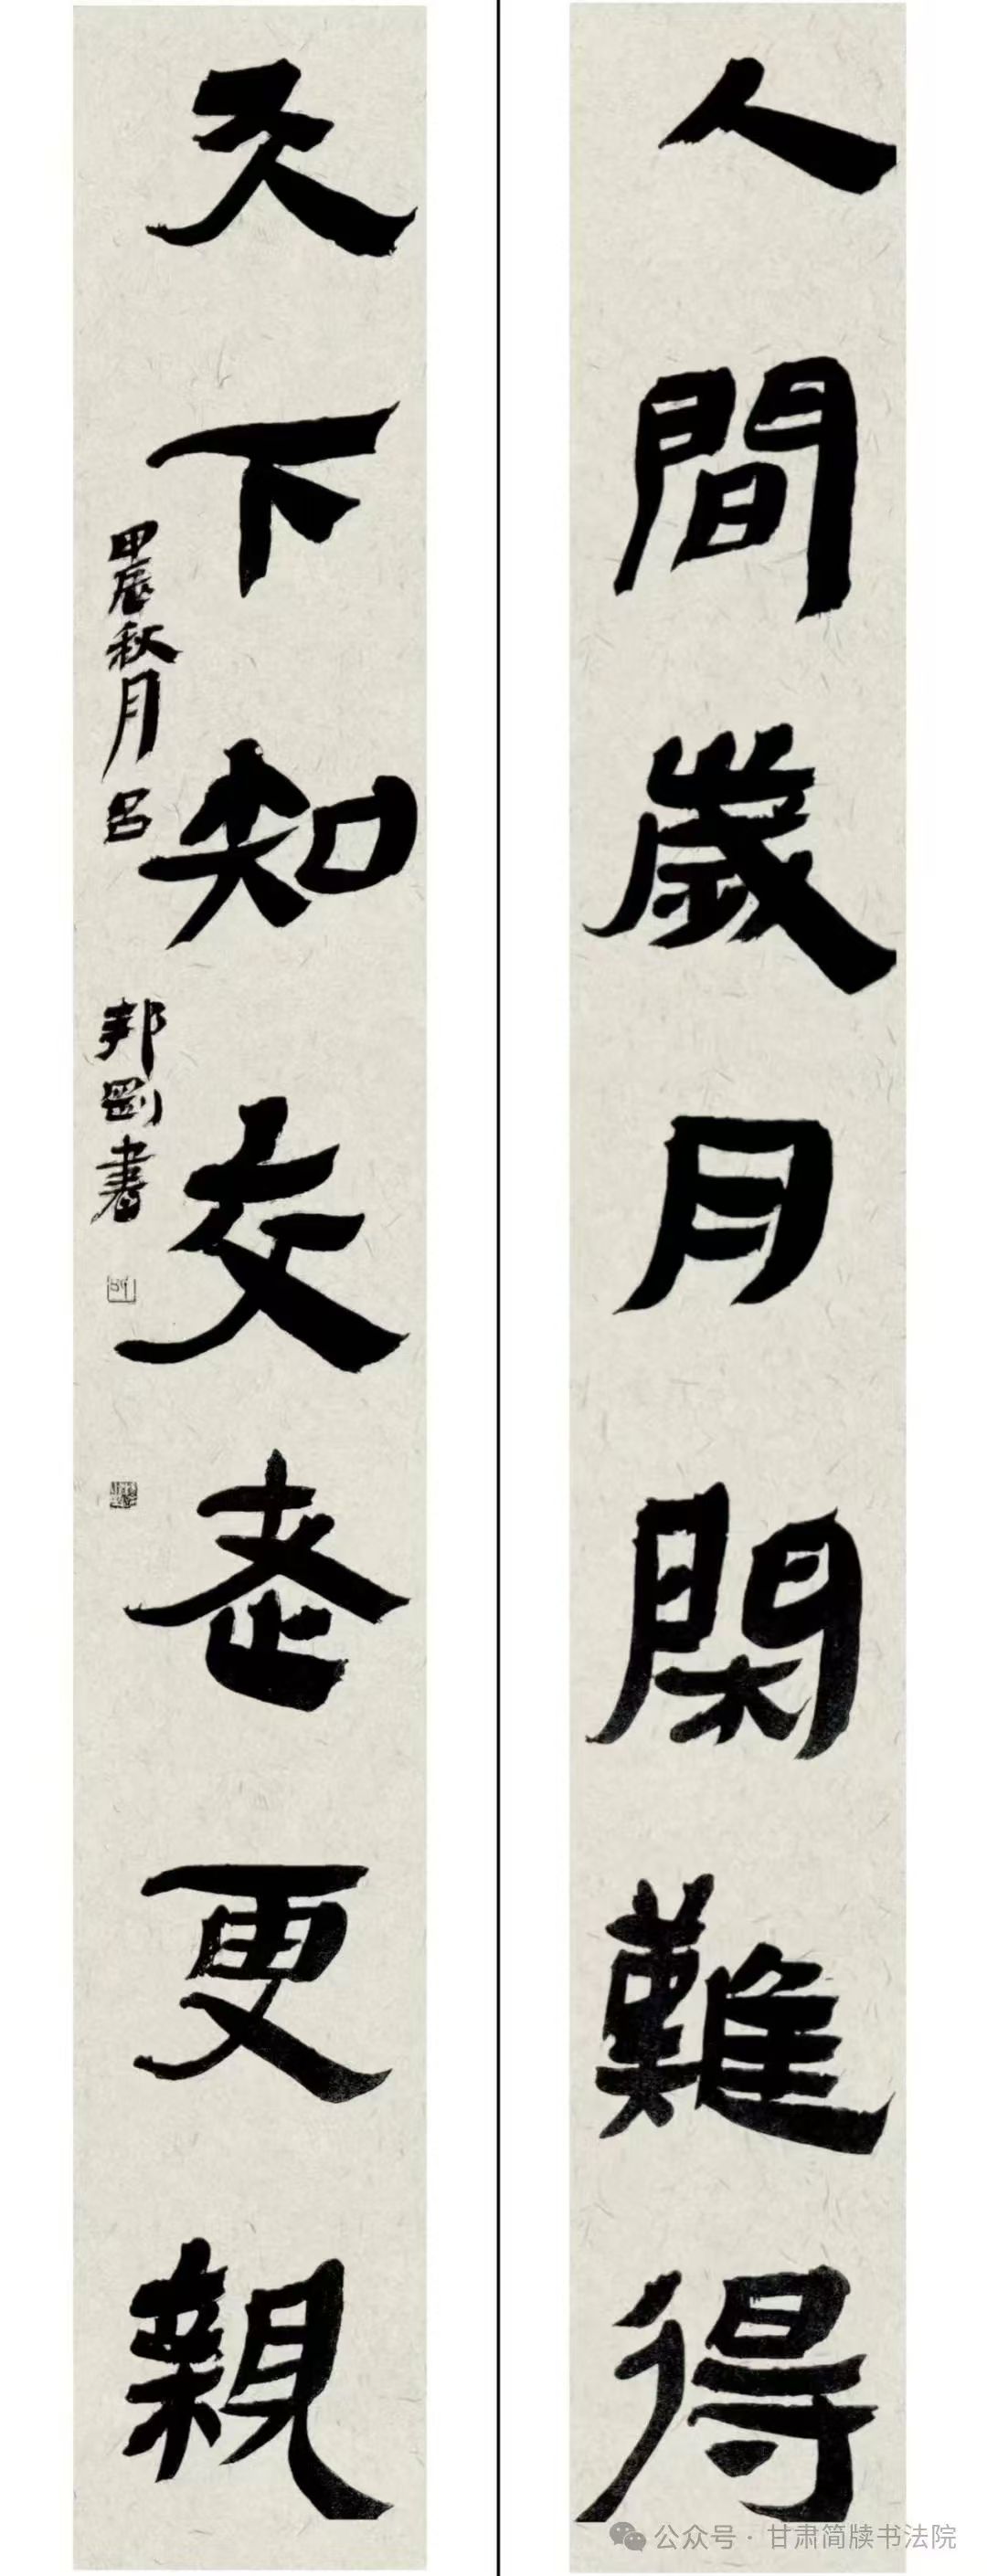 人間歲月閑難得
天下知交老更親
甲辰秋月呂邦剛書
公众号·甘肃简牍书法院